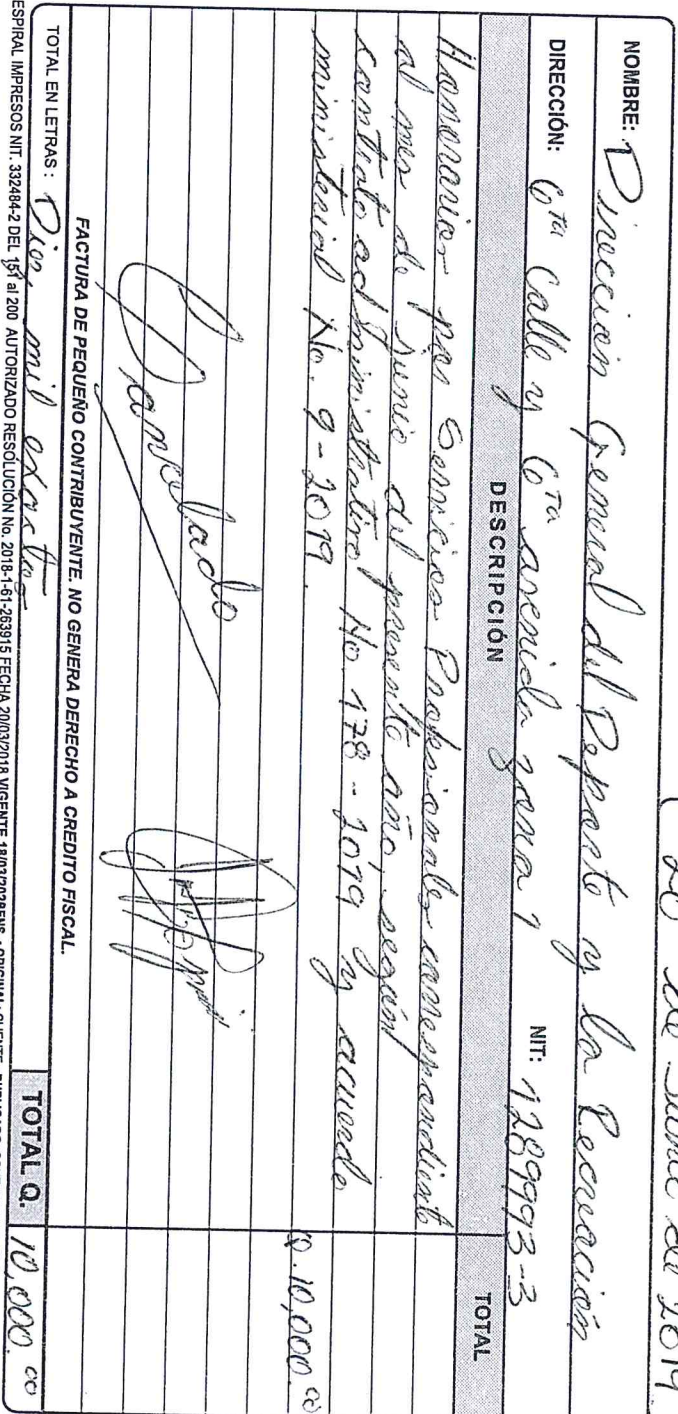 20 de Junio de 2019
NOMBRE: Dirección General del Deporte y la Recreación
DIRECCIÓN: 6ta Calle y 6ta avenida zona 1 NIT:
DESCRIPCIÓN TOTAL
Honorarios por Servicios Profesionales correspondiente
al mes de Junio del presente año, según
contrato administrativo No. 178-2019 y acuerdo
ministerial No. 9-2019. Q.10,000.00
Cancelado
FACTURA DE PEQUEÑO CONTRIBUYENTE. NO GENERA DERECHO A CREDITO FISCAL.
TOTAL EN LETRAS: Diez mil exactos TOTAL Q. 10,000.00
ESPIRAL IMPRESOS NIT. 332484-2 DEL 151 al 200 AUTORIZADO RESOLUCIÓN No. 2018-1-61-263915 FECHA 20/03/2018 VIGENTE